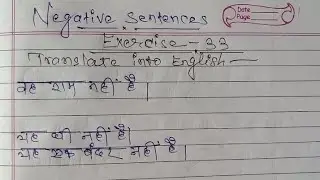 Negative Sentences
Date
Page
Exercise - 33
Translate into English —
वह राम नहीं है।
यह घी नहीं है।
यह एक बंदर नहीं है।